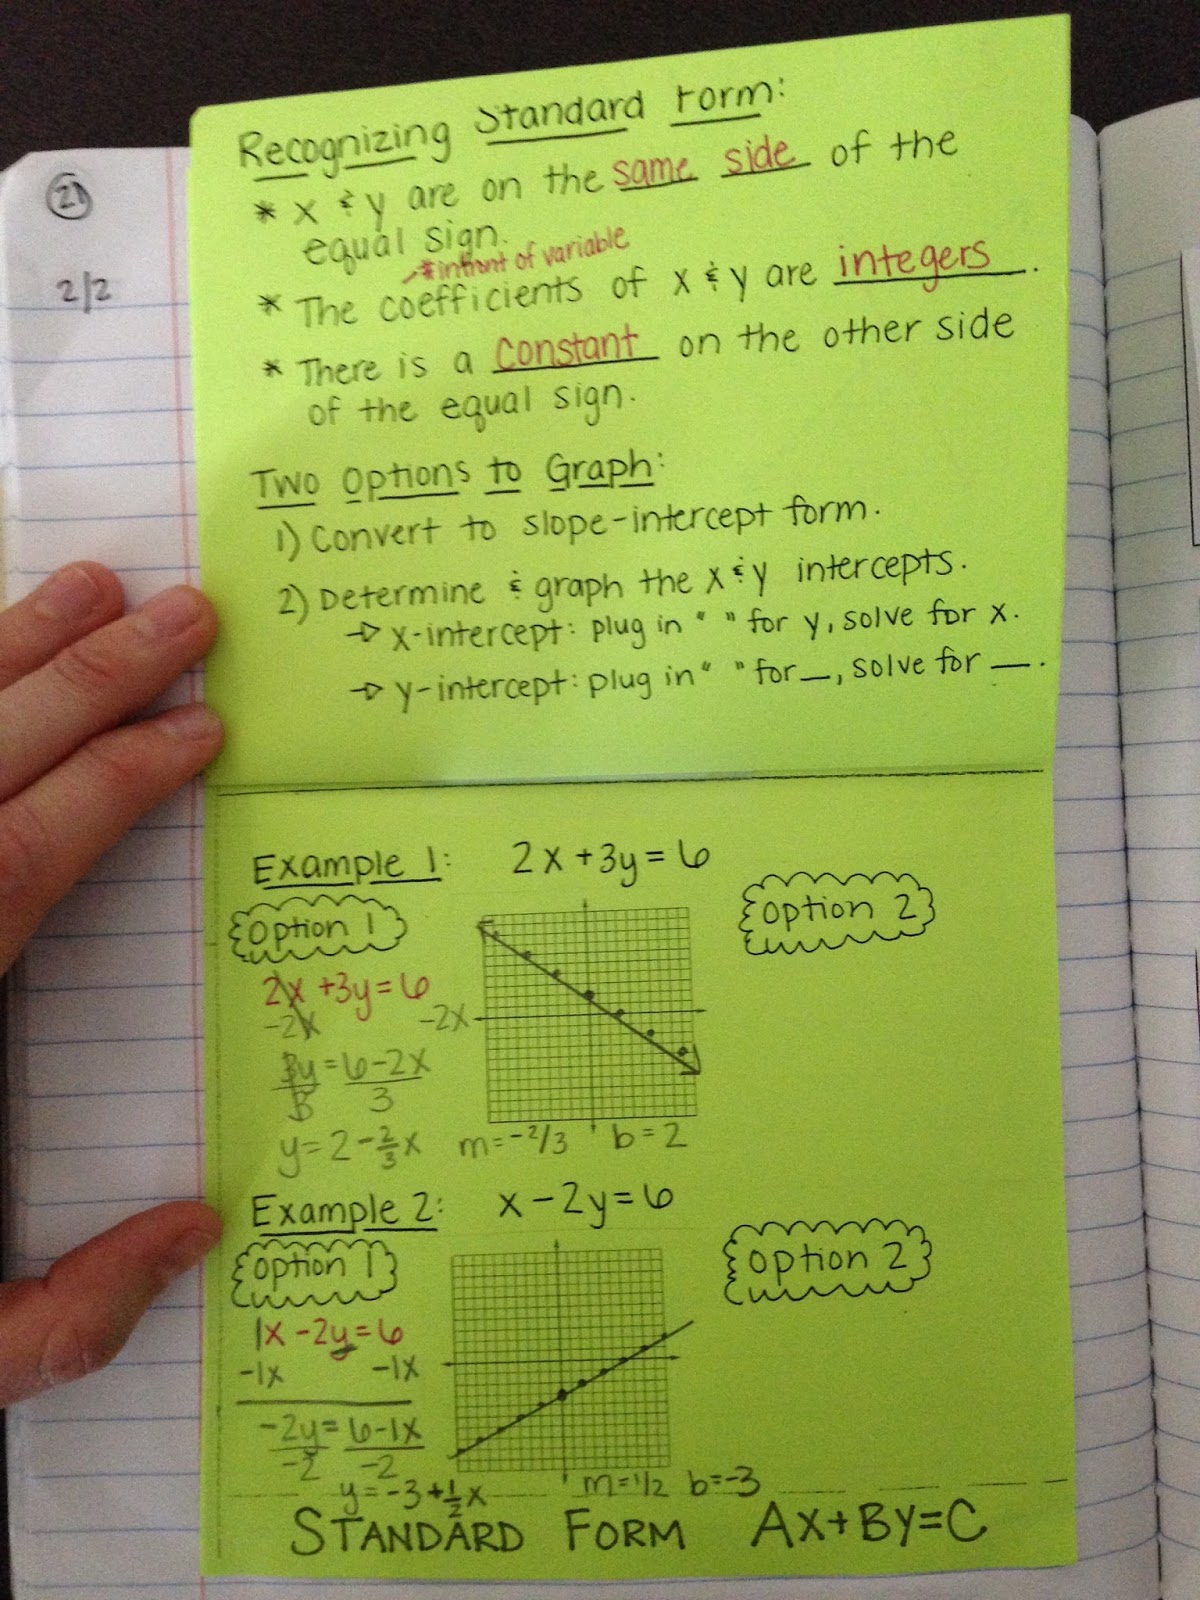 21
2/2
Recognizing Standard Form:
* x & y are on the same side of the
equal sign.
* infront of variable
* The coefficients of x & y are integers.
* There is a constant on the other side
of the equal sign.
Two Options to Graph:
1) Convert to slope-intercept form.
2) Determine & graph the x & y intercepts.
→ x-intercept: plug in " " for y, solve for x.
→ y-intercept: plug in " " for __, solve for __.
Example 1: 2x+3y=6
Option 1
Option 2
2x+3y=6
-2x -2x
3y = 6-2x
3 3
y=2-2/3x
m=-2/3 b=2
Example 2: x-2y=6
Option 1
Option 2
1x-2y=6
-1x -1x
-2y = 6-1x
-2 -2
y=-3+1/2x
m=1/2 b=-3
STANDARD FORM Ax+By=C